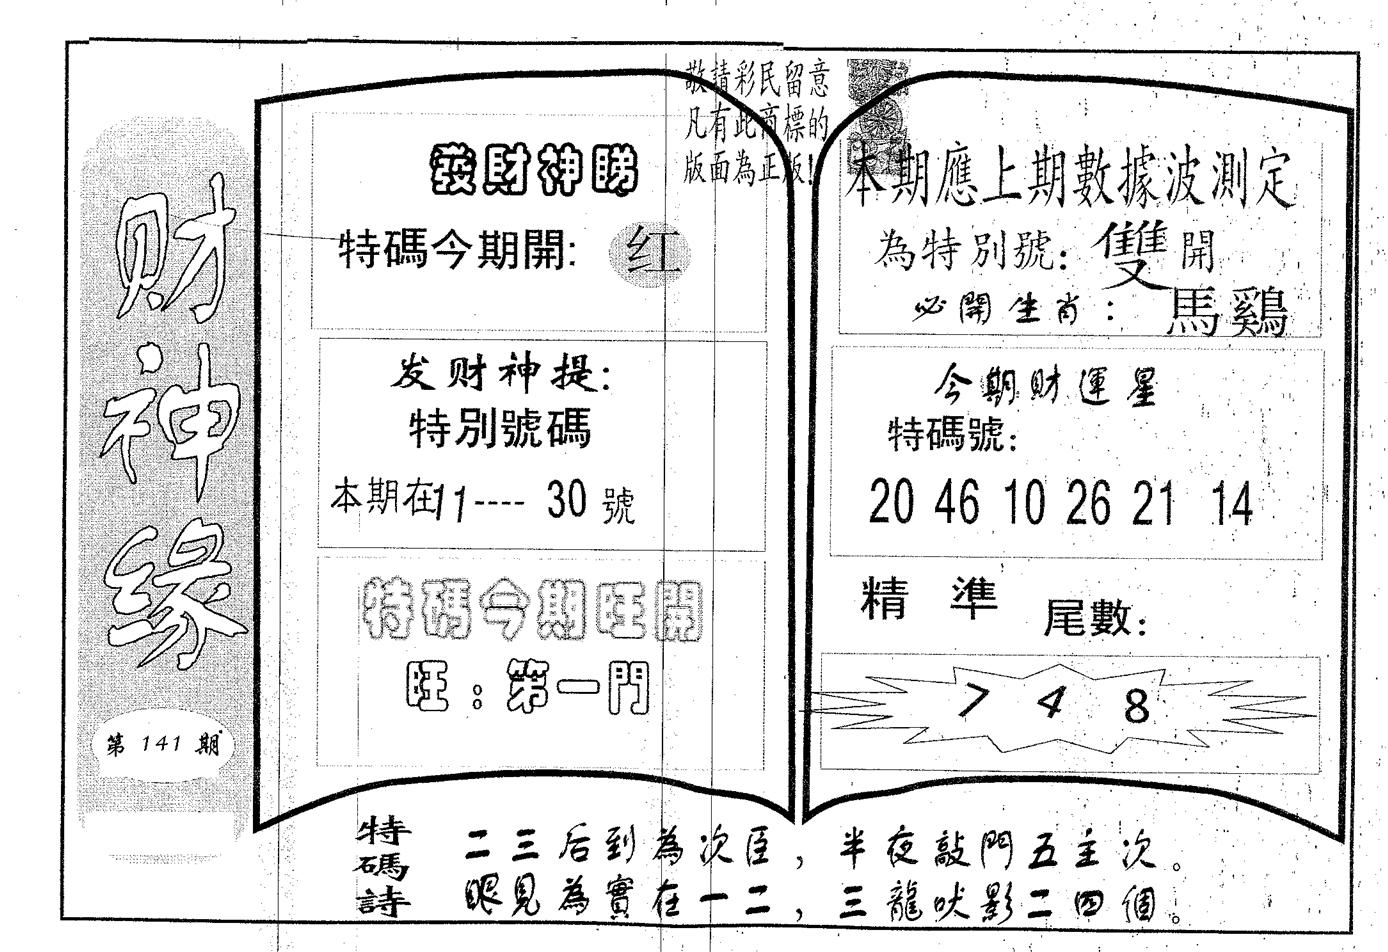 财神缘
第 141 期
敬請彩民留意
凡有此商標的
版面為正版!
發財神睇
特碼今期開: 红
发财神提:
特別號碼
本期在11---- 30 號
特碼今期旺開
旺: 第一門
本期應上期數據波測定
為特別號: 雙開
必開生肖: 馬鷄
今期財運星
特碼號:
20 46 10 26 21 14
精 準 尾數:
7 4 8
特碼詩
二三后到為次臣，半夜敲門五主次。
眼見為實在一二，三龍吠影二四個。